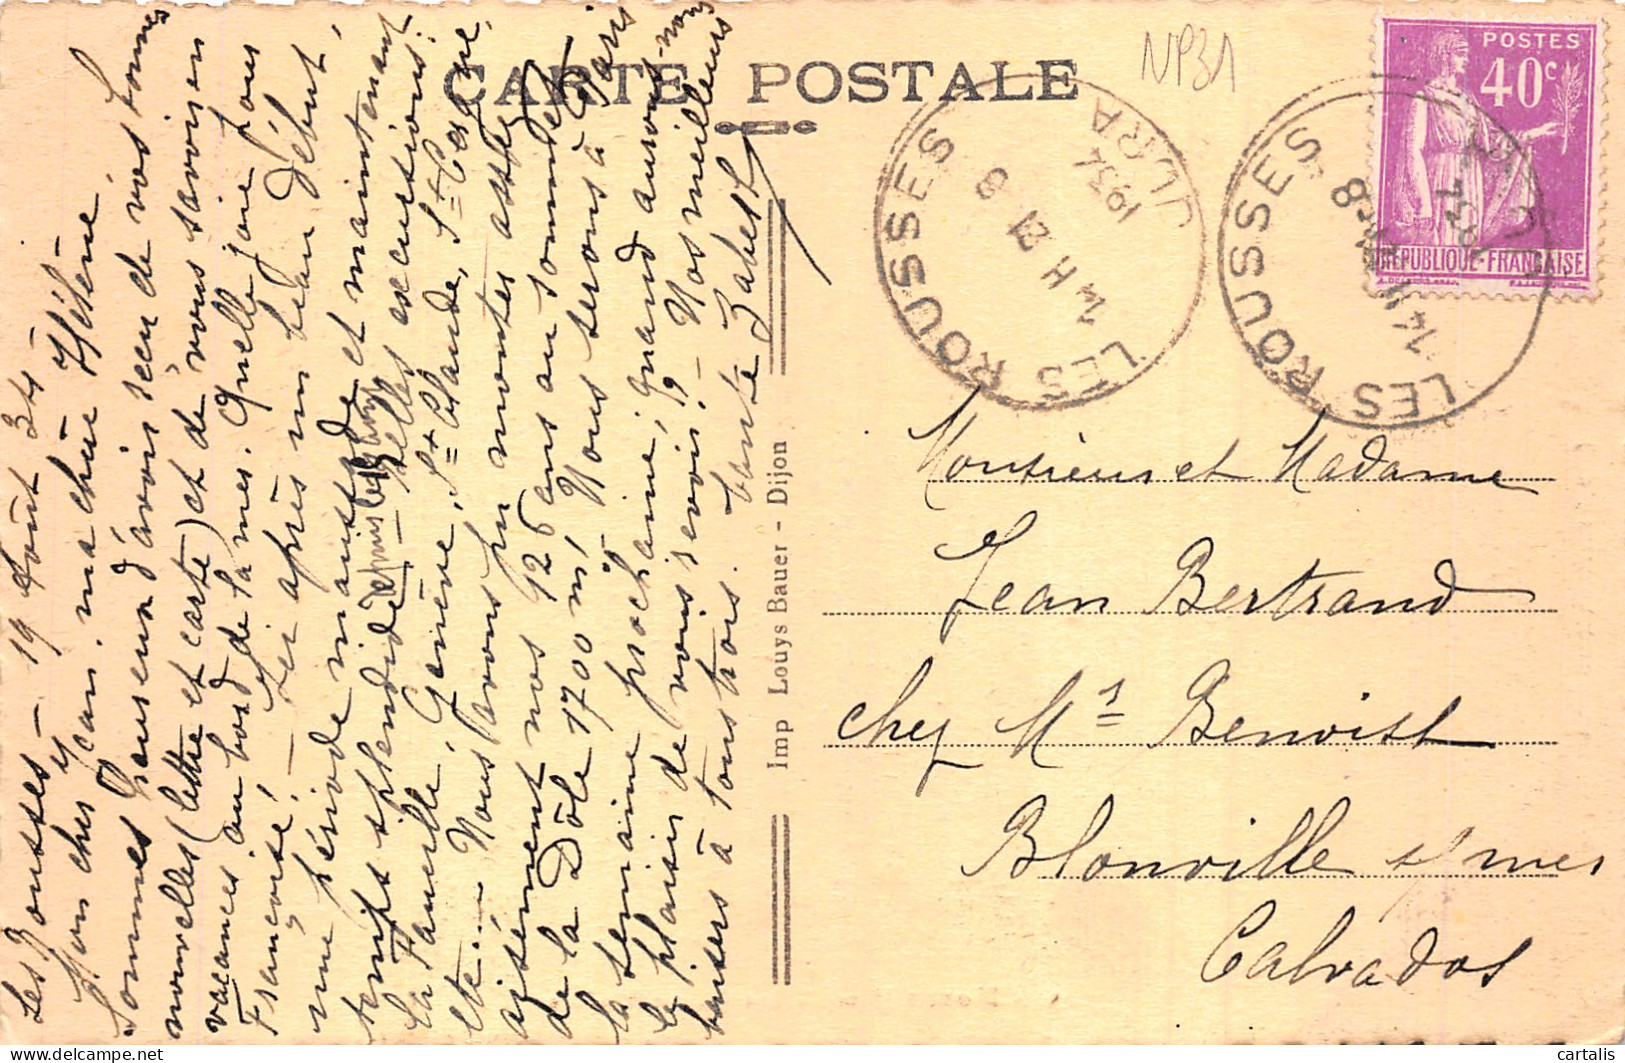 CARTE POSTALE
NP31
POSTES
40c
REPUBLIQUE FRANÇAISE
LES ROUSSES
14 H 21 8
1934
JURA
LES ROUSSES
14 H
8
1934
Monsieur et Madame
Jean Bertrand
chez Mr Benoist
Blonville s/ mer
Calvados
Imp Louys Bauer - Dijon
Les Rousses - 19 Août 34
Mon cher Jean, ma chère Hélène
Sommes heureux d'avoir reçu de vos bonnes
nouvelles (lettre et carte) et de vous savoir en
vacances au bord de la mer. Quelle joie pour
Françoise! - Ici après un beau début,
une période maussade et maintenant
temps splendide - Belles excursions:
La Faucille, Genève, St Claude, St Cergue,
etc... Nous avons pu monter assez
aisément nos 126 ans au sommet
de la Dôle 1700 m, Nous serons à Paris
la semaine prochaine, quand aurons-nous
le plaisir de vous revoir? - Nos meilleurs
baisers à tous trois.